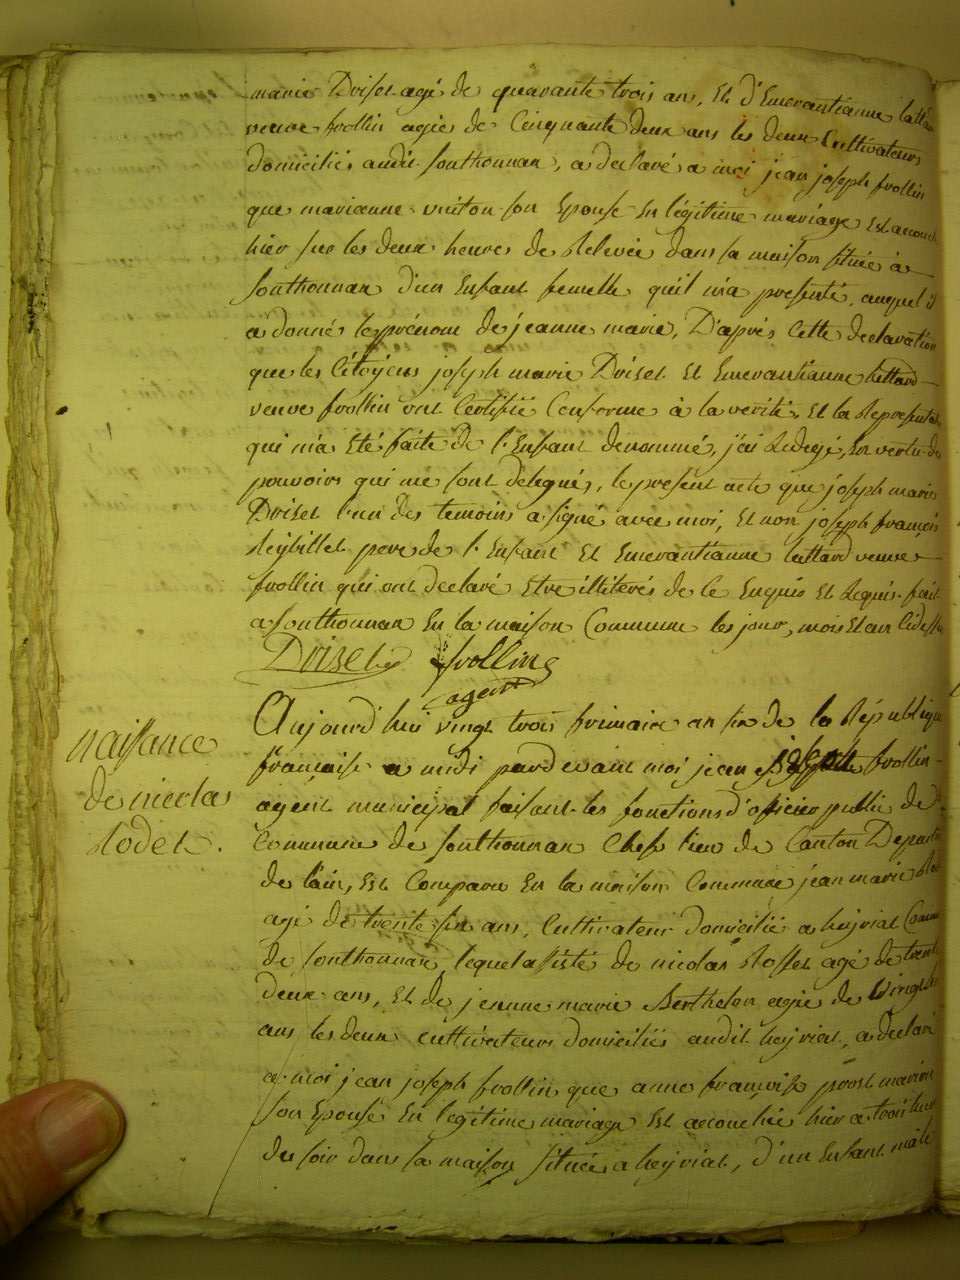 marie Driset agé de quarante trois ans, Et d'Emerantianne
veuve frollin agée de Cinquante deux ans les deux Cultivateurs
domiciliés audit Sonthonnax, a declaré a moi jean joseph frollin
que marianne son Epouse En légitime mariage Est accouch
hier sur les deux heures de Relevée dans sa maison située à
Sonthonnax d'un Enfant femelle qu'il m'a presenté, auquel il
a donnés le prénom de jeanne marie, D'après Cette declaration
que les Citoyens joseph marie Driset Et Emerantianne
veuve frollin ont Certifié Conforme à la verité, Et la Representa
qui m'a Eté faite de l'Enfant denommé, j'ai Redigé, En vertu des
pouvoirs qui me sont delegués, le present acte que joseph marie
Driset l'un des temoins a signé avec moi, Et non joseph françois
pere de l'Enfant Et Emerantianne veuve
frollin qui ont declaré Etre illiterés de ce Enquis Et Requis. fait
a Sonthonnax En la maison Commune les jour, mois Et an Cidessu
Driset frolling
agent
naissance
de nicolas
Rodet.
Aujourd'hui vingt trois frimaire an six de la République
française a midi pardevant moi jean joseph frollin
agent municipal faisant les fonctions d'officier public de
Commune de Sonthonnax Chef lieu de Canton Departe
de l'ain, Est Comparu En la maison Commune jean marie Rod
agé de trente six ans, Cultivateur domicilié a heyriat Comm
de Sonthonnax, lequel assisté de nicolas Rosset agé de trente
deux ans, Et de jeanne marie Berthelon agée de vingt
ans les deux cultivateurs domiciliés audit heyriat, a declaré
a moi jean joseph frollin que anne françoise prost
son Epouse En legitime mariage Est accouchée hier a trois heur
du soir dans sa maison située a heyriat, d'un Enfant male